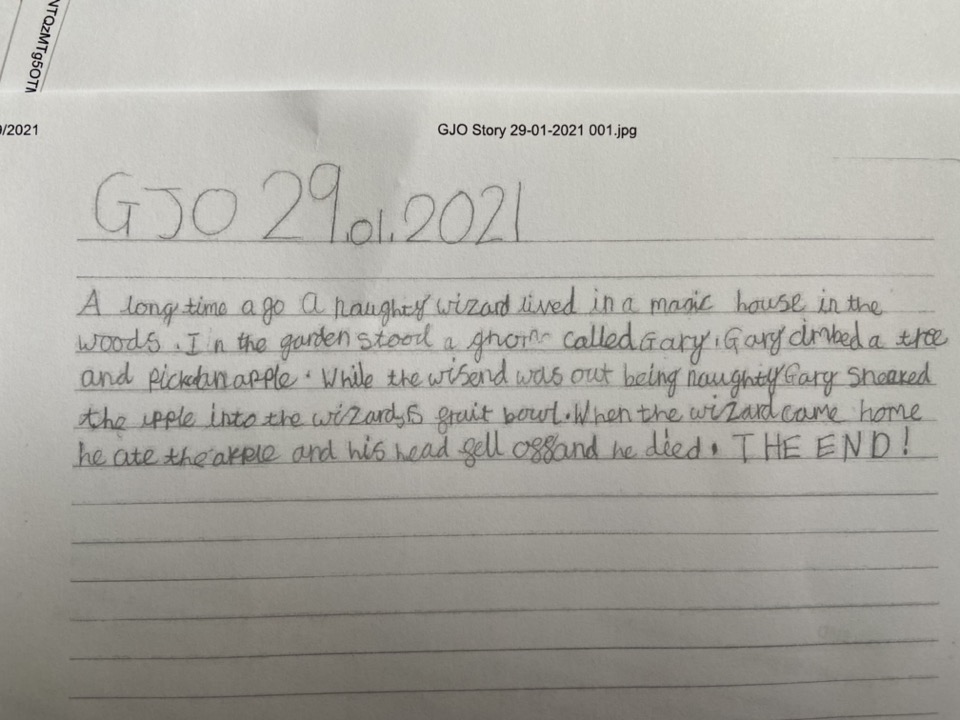 VTQzMTg5OTI
9/2021
GJO Story 29-01-2021 001.jpg
GJO 29.01.2021
A long time ago a naughty wizard lived in a magic house in the
woods. In the garden stood a gnome called Gary. Gary climbed a tree
and pickd an apple. While the wisend was out being naughty Gary sneaked
the apple into the wizards fruit bowl. When the wizard came home
he ate the apple and his head fell off and he died. THE END!